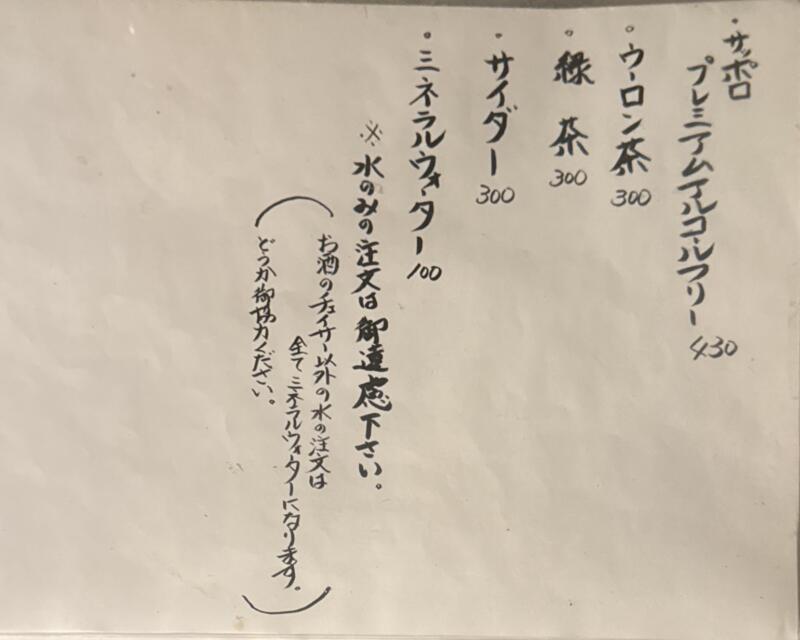 ・サッポロ
プレミアムアルコールフリー 430
・ウーロン茶 300
・緑茶 300
・サイダー 300
・ミネラルウォーター 100
※水のみの注文は御遠慮下さい。
(お酒のチェイサー以外の水の注文は
全てミネラルウォーターになります。
どうか御協力ください。)